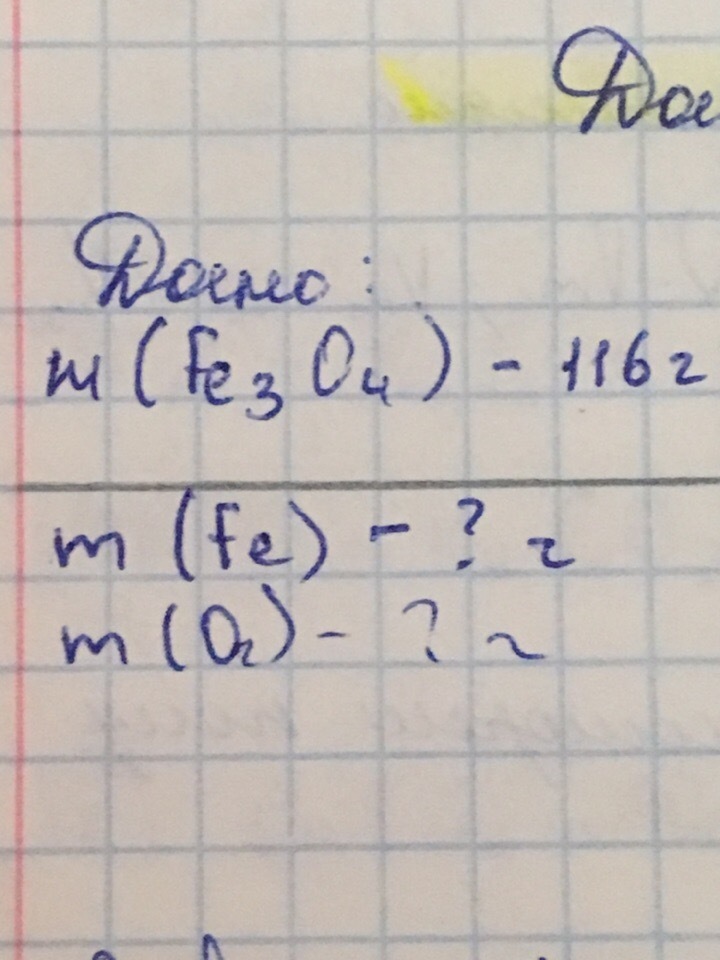 Дано:
m(Fe₃O₄) - 116г
m(Fe) - ? г
m(O₂) - ? г